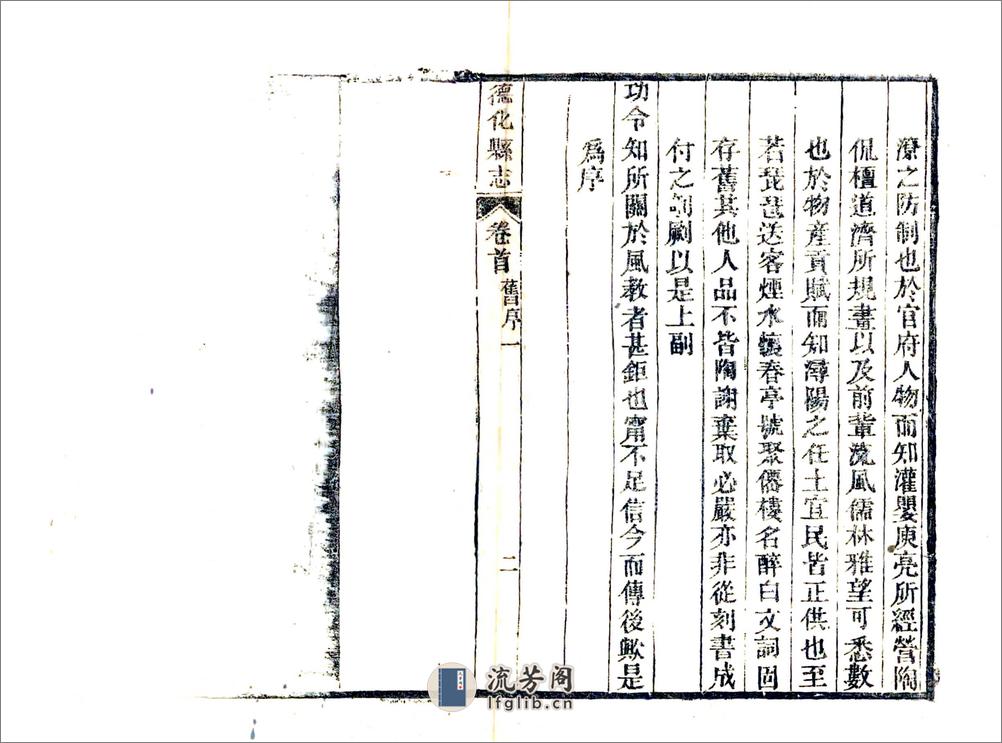 潦之防制也於官府人物而知灌嬰庾亮所經營陶
侃檀道濟所規畫以及前輩流風儒林雅望可悉數
也於物產貢賦而知潯陽之任土宜民皆正供也至
若琵琶送客煙水懷春亭號聚僊樓名醉白文詞固
存舊其他人品不皆陶謝棄取必嚴亦非從刻書成
付之剞劂以是上副
功令知所關於風教者甚鉅也甯不足信今而傳後歟是
爲序
德化縣志
卷首
舊序一
二
流芳阁
lfglib.cn